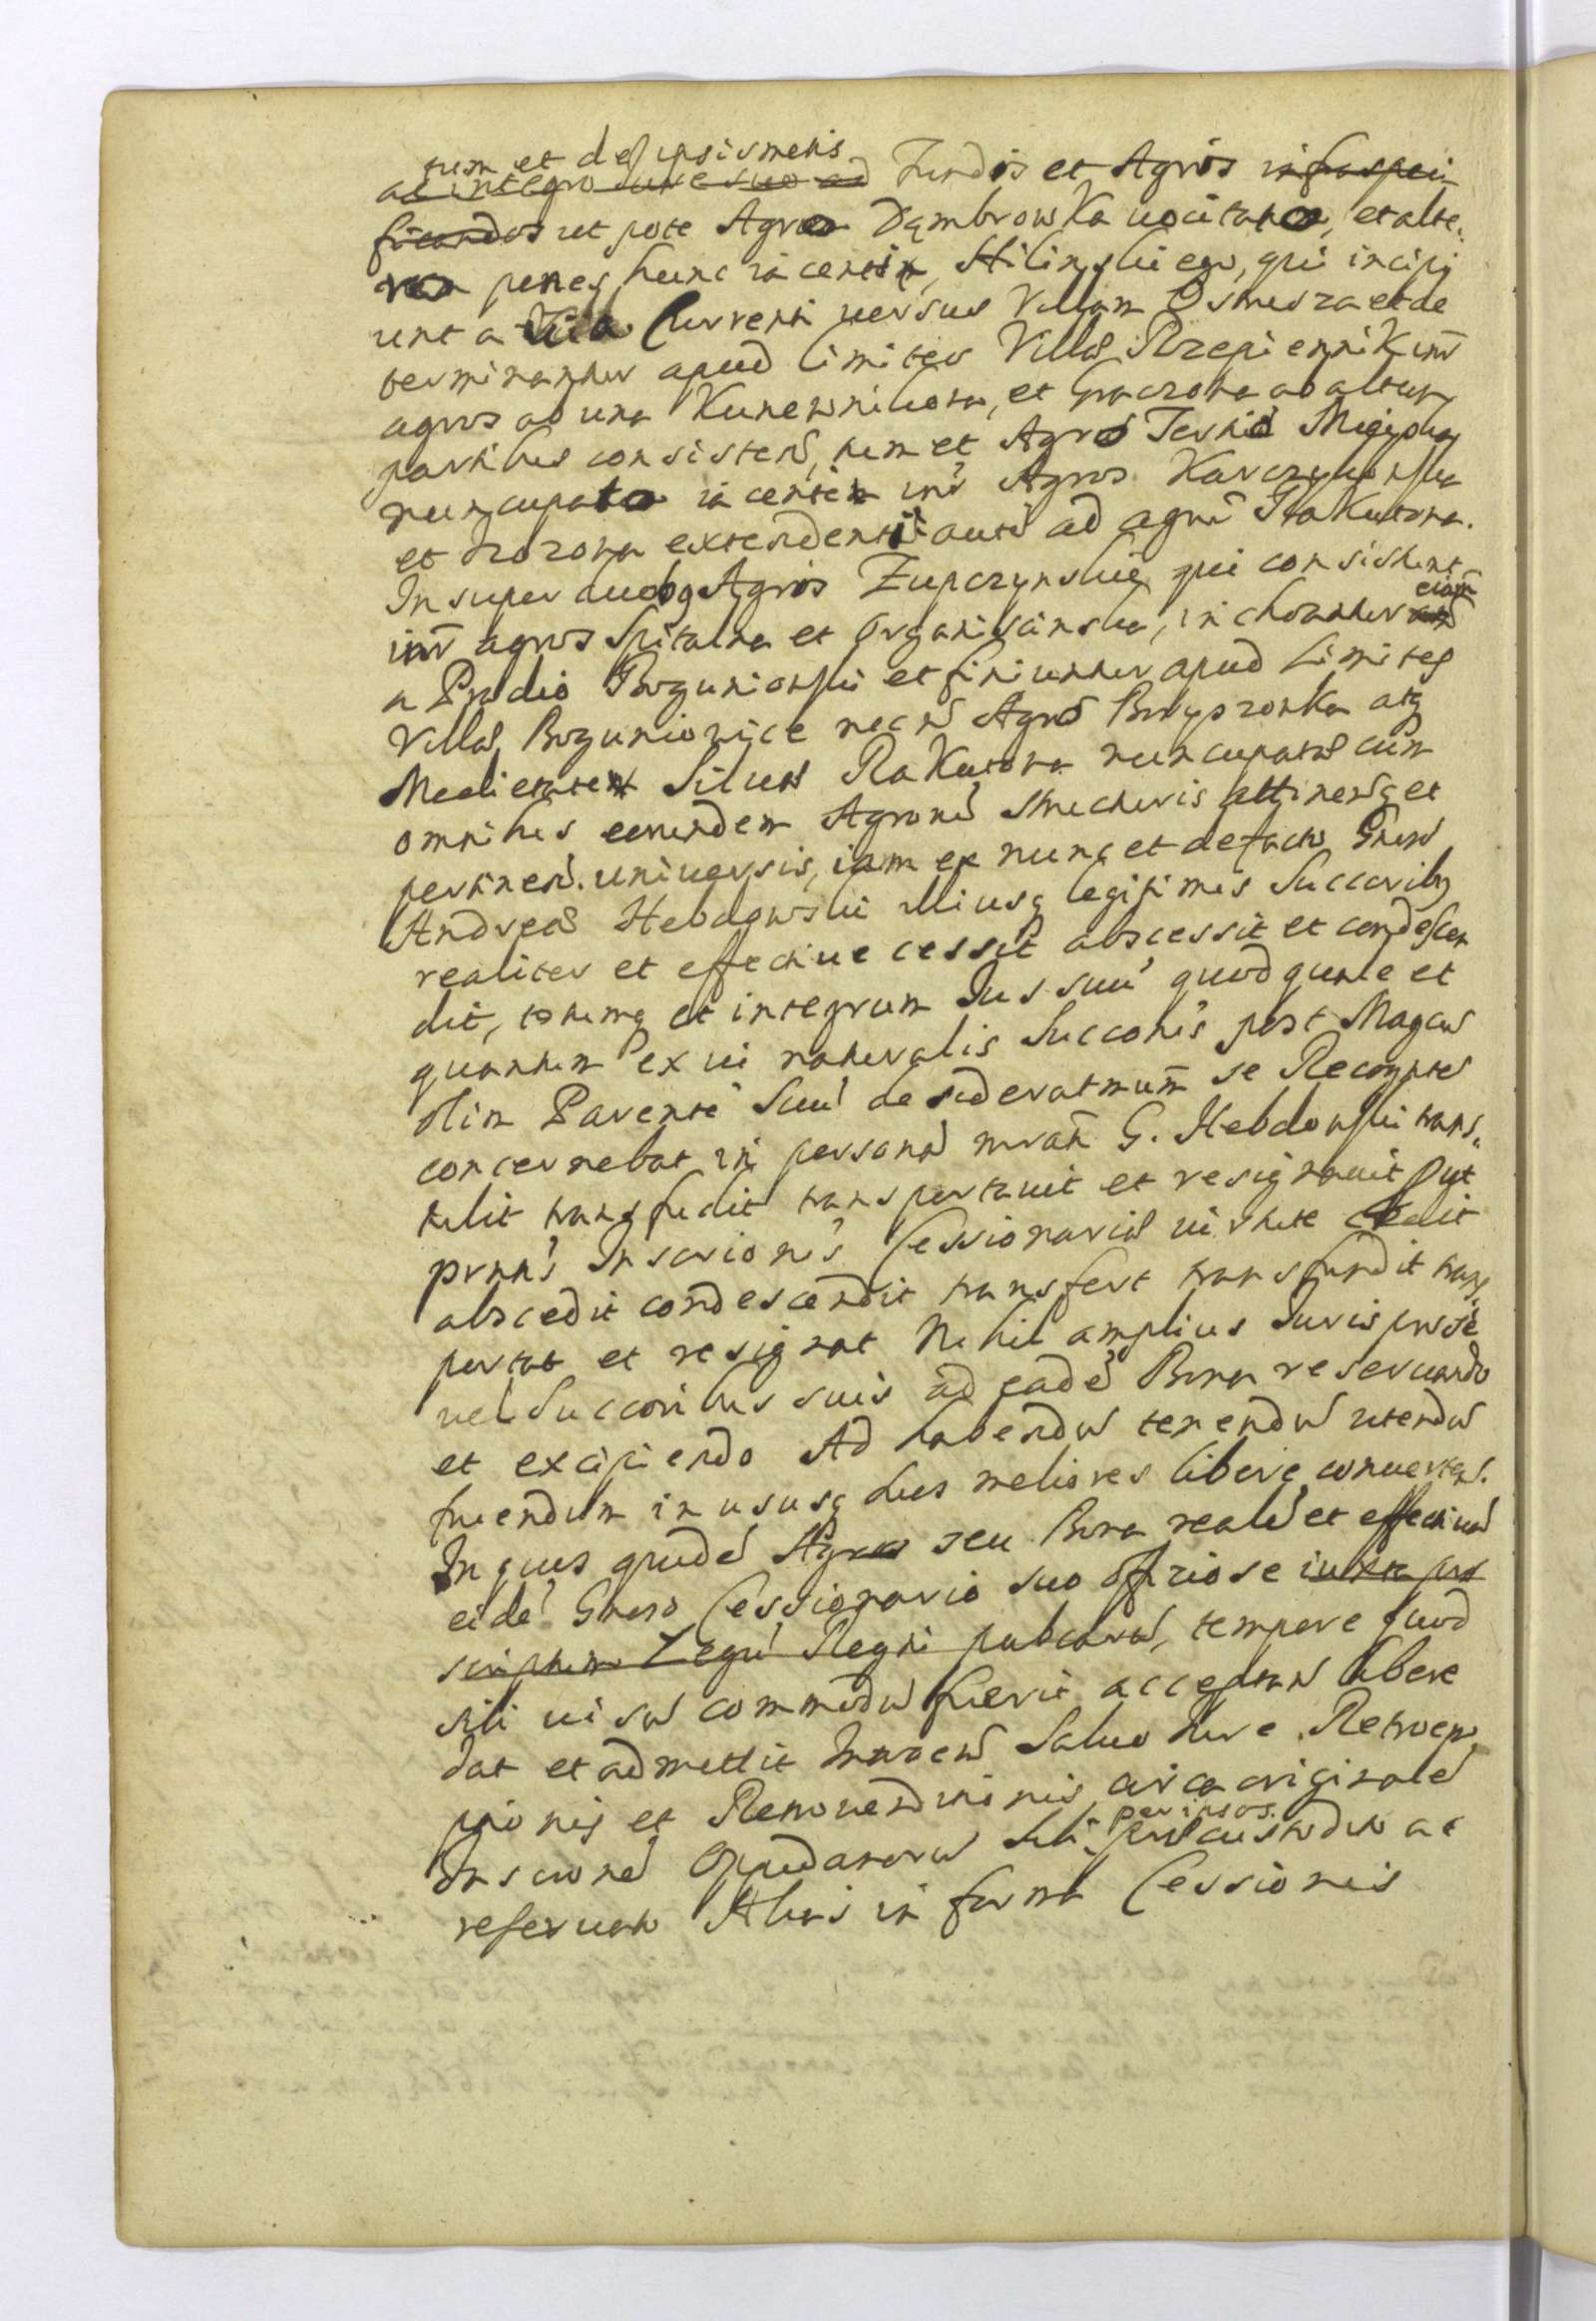 tum et de ipsismetis
ac integro iure suo ad Fundis et Agris infraspeci
ficandos ut pote Agro Dąmbrowka uocitato, et alte
ro penes hunc iacenti, Stilinskiego, qui incipi
unt a Via Currenti uersus Villam Ostrusza et de
terminantur apud limites Villæ Rzepiennik int
agros ab una Kunewnikowa, et Graczowa ab altera
partibus consisten, tum et Agro Tertio
nuncupato iacenti int Agros Karczykowska
et extendenti aute ad agrum Rakutowa.
Insuper duobq Agris Zupczynskie qui consistunt
int agros Spitalna et Organiscinska, inchoantur etiam
a Prædio Boguniowski et finiuntur apud Limites
Villæ Boguniowice necn Agro atq
Medietate Siluæ Rakutowa nuncupatæ cum
omnibus eorundem Agrorum structuris attinenq et
pertinen. uniuersis, iam ex nunc et de facto Gneroso
Andreæ Hebdowski illiusq legitimis Succoribq
realiter et effectiue cessit abscessit et condescen
dit, totumq et integrum Ius suum quodqunle et
quantum ex ui naturalis Succonis post Magcum
olim Parentem Suum desideratum se Recognten
concernebat in personam mratam G. Hebdowski trans
tulit transfudit transportauit et resignauit Put
prntis Inscrionis Cessionariæ uirtute cedit
abscedit condescendit transfert transfundit trans
portat et resignat Nihil amplius Iuris pro se
uel Succoribus suis ad eadem Bona reseruando
et excipiendo Ad habendum tenendum utendum
fruendum in ususq suos meliores libere conuerten.
In quos quidem Agros seu Bona realem et effectiuam
eidem Gneroso Cessionario suo offriose iuxta præ
scriptum Legum Regni publicarum, tempore quod
sibi uisum commodum fuerit acceptan libere
dat et admittit Intromissionem Saluo Iure Retroemp
tionis et Retrouenditionis circa originalem
Inscrionem Oppidanorum sibi per ipsos præcustodito ac
reseruato Alias in forma Cessionis